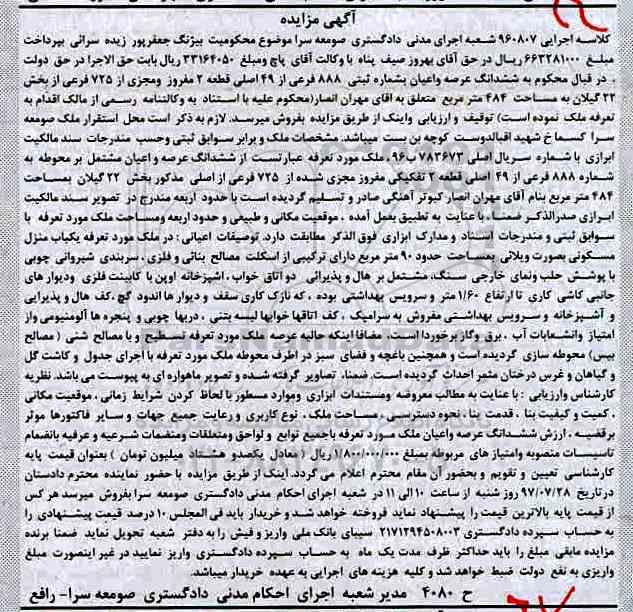 آگهی مزایده
کلاسه اجرایی ۹۶۰۸۰۷ شعبه اجرای مدنی دادگستری صومعه سرا موضوع محکومیت بیژنگ جعفرپور زیده سرائی بپرداخت
مبلغ ۶۶۳۲۸۱۰۰۰ ریال در حق آقای بهروز صیف پناه با وکالت آقای پاچ ومبلغ ۳۳۱۶۴۰۵۰ ریال بابت حق الاجرا در حق دولت
، در قبال محکوم به ششدانگ عرصه واعیان بشماره ثبتی ۸۸۸ فرعی از ۴۹ اصلی قطعه ۲ مفروز ومجزی از ۷۲۵ فرعی از بخش
۲۲ گیلان به مساحت ۴۸۴ متر مربع متعلق به اقای مهران انصار(محکوم علیه با استناد به وکالتنامه رسمی از مالک اقدام به
تعرفه ملک نموده است) توقیف و ارزیابی واینک از طریق مزایده بفروش میرسد. لازم به ذکر است محل استقرار ملک صومعه
سرا کسما خ شهید اقبالدوست کوچه بن بست میباشد. مشخصات ملک و برابر سوابق ثبتی وحسب مندرجات سند مالکیت
ابرازی با شماره سریال اصلی ۷۸۳۶۷۳ ب۹۶، ملک مورد تعرفه عبارتست از ششدانگ عرصه و اعیان مشتمل بر محوطه به
شماره ۸۸۸ فرعی از ۴۹ اصلی قطعه ۲ تفکیکی مفروز مجزی شده از ۷۲۵ فرعی از اصلی مذکور بخش ۲۲ گیلان بمساحت
۴۸۴ متر مربع بنام آقای مهران انصار کبوتر آهنگی صادر و تسلیم گردیده است با حدود اربعه مندرج در تصویر سند مالکیت
ابرازی صدرالذکر ضمنا، با عنایت به تطبیق بعمل آمده ، موقعیت مکانی و طبیعی و حدود اربعه ومساحت ملک مورد تعرفه با
سوابق ثبتی و مندرجات اسناد و مدارک ابرازی فوق الذکر مطابقت دارد. توصیفات اعیانی : در ملک مورد تعرفه یکباب منزل
مسکونی بصورت ویلائی بمساحت حدود ۹۰ متر مربع دارای ترکیبی از اسکلت مصالح بنائی و فلزی ، سربندی شیروانی چوبی
با پوشش حلب ونمای خارجی سنگ، مشتمل بر هال و پذیرائی دو اتاق خواب ، اشپزخانه اوپن با کابینت فلزی ودیوار های
جانبی کاشی کاری تا ارتفاع ۱/۶۰ متر و سرویس بهداشتی بوده ، که نازک کاری سقف و دیوار ها اندود گچ، کف هال و پذیرایی
و آشپزخانه و سرویس بهداشتی مفروش به سرامیک ، کف اتاقها خوابها لیسه بتنی ، دربها چوبی و پنجره ها آلومنیومی واز
امتیاز وانشعابات آب ، برق وگاز برخوردا است. مضافا اینکه حالیه عرصه ملک مورد تعرفه تسطیح و با مصالح شنی ( مصالح
بیس) محوطه سازی گردیده است و همچنین باغچه و فضای سبز در اطرف محوطه ملک مورد تعرفه با اجرای جدول و کاشت گل
و گیاهان و غرس درختان مثمر احداث گردیده است. ضمنا، تصاویر گرفته شده و تصویر ماهواره ای به پیوست می باشد. نظریه
کارشناس وارزیابی : با عنایت به مطالب معروضه ومستندات ابزاری وموارد مسطور با لحاظ کردن شرایط زمانی ، موقعیت مکانی
، کمیت و کیفیت بنا ، قدمت بنا ، نحوه دسترسی ، مساحت ملک ، نوع کاربری و رعایت جمیع جهات و سایر فاکتورها موثر
برقضیه ، ارزش ششدانگ عرصه واعیان ملک مورد تعرفه با جمیع توابع و لواحق ومتعلقات ومنضمات شرعیه و عرفیه بانضمام
تاسیسات منصوبه وامتیاز های مربوطه بمبلغ ۱/۸۰۰/۰۰۰/۰۰۰ ریال ( معادل یکصدو هشتاد میلیون تومان ) بعنوان قیمت پایه
کارشناسی تعیین و تقویم و بحضور آن مقام محترم اعلام می گردد. اینک از طریق مزایده با حضور نماینده محترم دادستان
در تاریخ ۹۷/۰۷/۲۸ روز شنبه از ساعت ۱۰ الی ۱۱ در شعبه اجرای احکام مدنی دادگستری صومعه سرا بفروش میرسد هر کس
از قیمت پایه بالاترین قیمت را پیشنهاد نماید فروخته خواهد شد و خریدار باید فی المجلس ۱۰ درصد قیمت پیشنهادی را
به حساب سپرده دادگستری ۲۱۷۱۲۹۴۵۰۸۰۰۳ سیبای بانک ملی واریز و فیش را به دفتر شعبه تحویل نماید ضمنا برنده
مزایده مابقی مبلغ را باید حداکثر ظرف مدت یک ماه به حساب سپرده دادگستری واریز نمایید در غیر اینصورت مبلغ
واریزی به نفع دولت ضبط خواهد شد و کلیه هزینه های اجرایی به عهده خریدار میباشد.
ح ۴۰۸۰ مدیر شعبه اجرای احکام مدنی دادگستری صومعه سرا– رافع